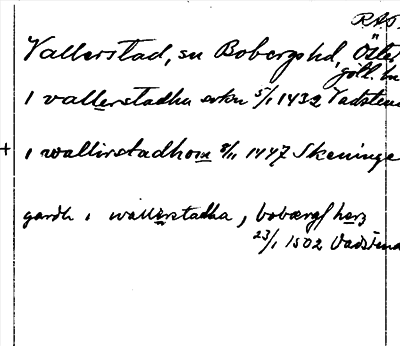 RAP.
Vallerstad, sn Bobergs hd, Öster
götl. ln
I vallerstadha sokn 5/1 1432 Vadstena
+ I wallirstadhom 8/11 1447 Skeninge
gardh i wallerstadha, bobærgs herz
23/1 1502 Vadstena